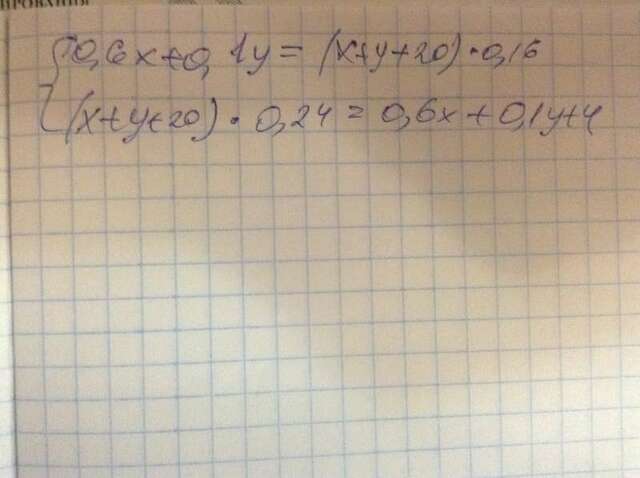 0,6x+0,1y=(x+y+20)·0,16
(x+y+20)·0,24=0,6x+0,1y+4